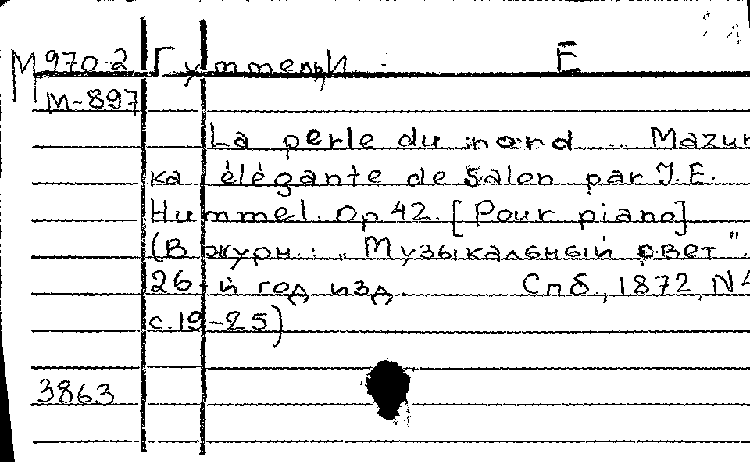 М 970-2 Гуммель И. Е
М-897
La perle du nord .. Mazur
ka élégante de Salon par J.E.
Hummel. Op 42. [Pour piano]
(В журн.: „Музыкальный свет".
26-й год изд. Спб., 1872, N4
с. 19-25)
3863